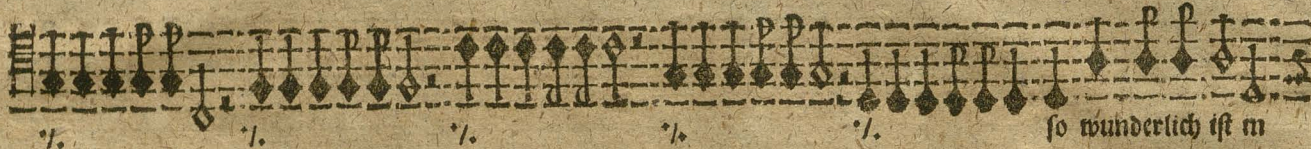 ·/. ·/. ·/. ·/. ·/. ſo wunderlich iſt m